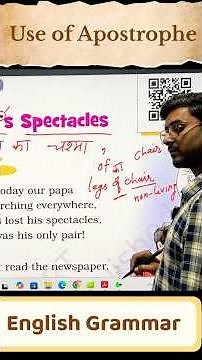 Use of Apostrophe
's Spectacles
का चश्मा ,
chair
of का
legs of chair
non-living
oday our papa
rching everywhere,
s lost his spectacles,
vas his only pair!
t read the newspaper,
English Grammar